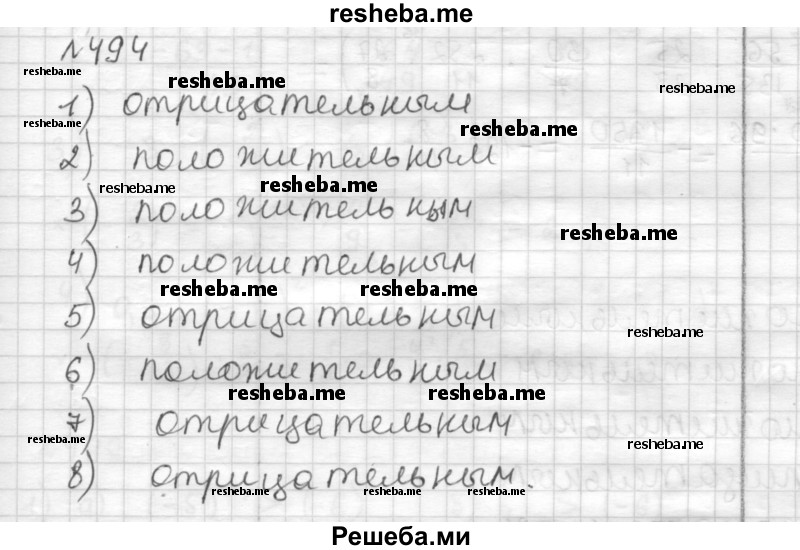 resheba.me
№494
resheba.me
resheba.me
resheba.me
1) отрицательным
resheba.me
resheba.me
2) положительным
resheba.me
resheba.me
3) положительным
resheba.me
4) положительным
resheba.me resheba.me
5) отрицательным
resheba.me
6) положительным
resheba.me resheba.me
7) отрицательным
resheba.me
resheba.me
8) отрицательным.
resheba.me resheba.me resheba.me
Решеба.ми